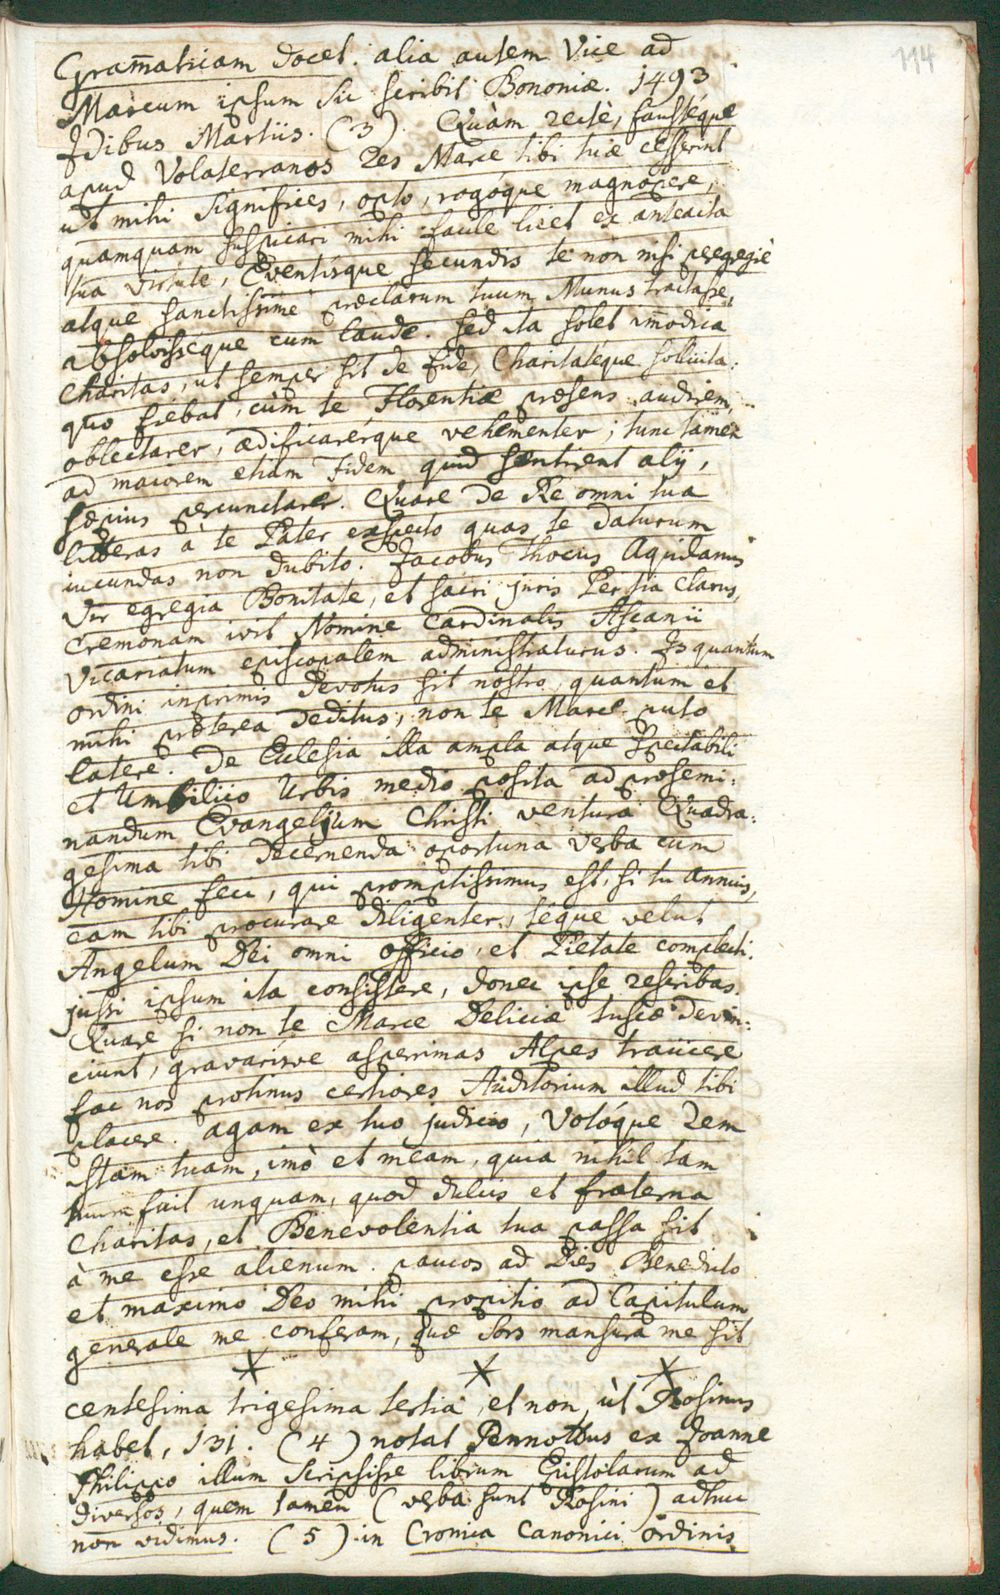 114
Gram̅aticam docet. alia autem Vice ad
Marcum ipsum sic scribit Bononiæ. 1493
Idibus Martiis. (3). Quàm rectè, faustéque
apud Volaterranos Res Marce tibi tuæ cesserint
ut mihi significes, opto, rogóque magnopere,
quamquam suspicari mihi facile licet ex anteacta
tua virtute, Eventísque secundis te non nisi peregregiè
atque sanctissime præclarum tuum Munus tractasse,
absolvisséque cum laude. sed ita solet im̅odica
Charitas, ut semper sit de fide, Charitatéque sollicita.
quo fiebat, cùm te Florentiæ præsens audirem,
oblectarer, ædificarérque vehementer; tunc tamen
ad maiorem etiam Fidem quid sentirent alij,
sæpius percunctarer. Quare de Re omni tua
litteras à te Pater expecto quas te daturum
iucundas non dubito. Jacobus Thocus Aquidanus
Vir egregia Bonitate, et sacri juris Peritia clarus,
Cremonam ivit Nomine Cardinalis Ascanii
Vicariatum episcopalem administraturus. Is quantum
ordini inprimis devotus sit nostro, quantum et
mihi præterea deditus, non te Marce puto
latere. De Eclesia illa ampla atque spectabili
et Umbilico Urbis medio posita ad prosemi:
nandum Evangelium Christi ventura Quadra:
gesima tibi decernenda oportuna verba cum
Homine feci, qui promptissimus est, si tu annuis,
eam tibi procurare diligenter, téque velut
Angelum Dei omni officio, et Pietate complecti.
jussi ipsum ita consistere, donec ipse rescribas.
Quare si non te Marce Deliciæ tuscæ devin:
ciunt, gravarisve asperrimas Alpes traiicere
fac nos protinus certiores Auditorium illud tibi
placere. agam ex tuo judicio, Votóque Rem
istam tuam, imò et meam, quia nihil tam
tuum fuit unquam, quod dulcis et fraterna
Charitas, et Benevolentia tua passa sit
à me esse alienum. paucos ad Dies Benedicto
et maximo Deo mihi propitio ad Capitulum
generale me conferam, quæ sors mansura me sit
centesima trigesima tertia, et non, ùt Rosinus
habet, 131. (4) notat Pennottus ex Joanne
Philippo illum scripsisse librum Epistolarum ad
diversos, quem tamen (verba sunt Rosini) adhuc
non vidimus. (5) in Cronica canonici ordinis